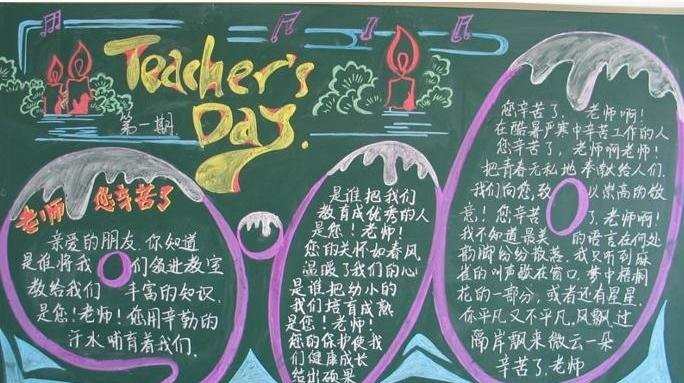 Teacher's
Day.
第一期
老师 您辛苦了
亲爱的朋友.你知道
是谁将我们领进教室
教给我们丰富的知识.
是您!老师!您用辛勤的
汗水哺育着我们.
是谁把我们
教育成优秀的人
是您!老师!
您的关怀如春风.
温暖了我们的心
是谁把幼小的
我们培育成熟
是您!老师!
您的保护使我
们健康成长
结出硕果
您辛苦了,老师啊!
在酷暑严寒中辛苦工作的人
您辛苦了,老师啊老师!
把青春无私地奉献给人们.
我们向您,致以崇高的敬
意!您辛苦了,老师啊!
我不知道最美的语言在何处
韵脚纷纷散落.我只听到麻
雀的叫声歇在窗口,梦中梧桐
花的一部分,或者还有星星.
你平凡又不平凡,风飘过
隔岸飘来微云一朵
辛苦了.老师